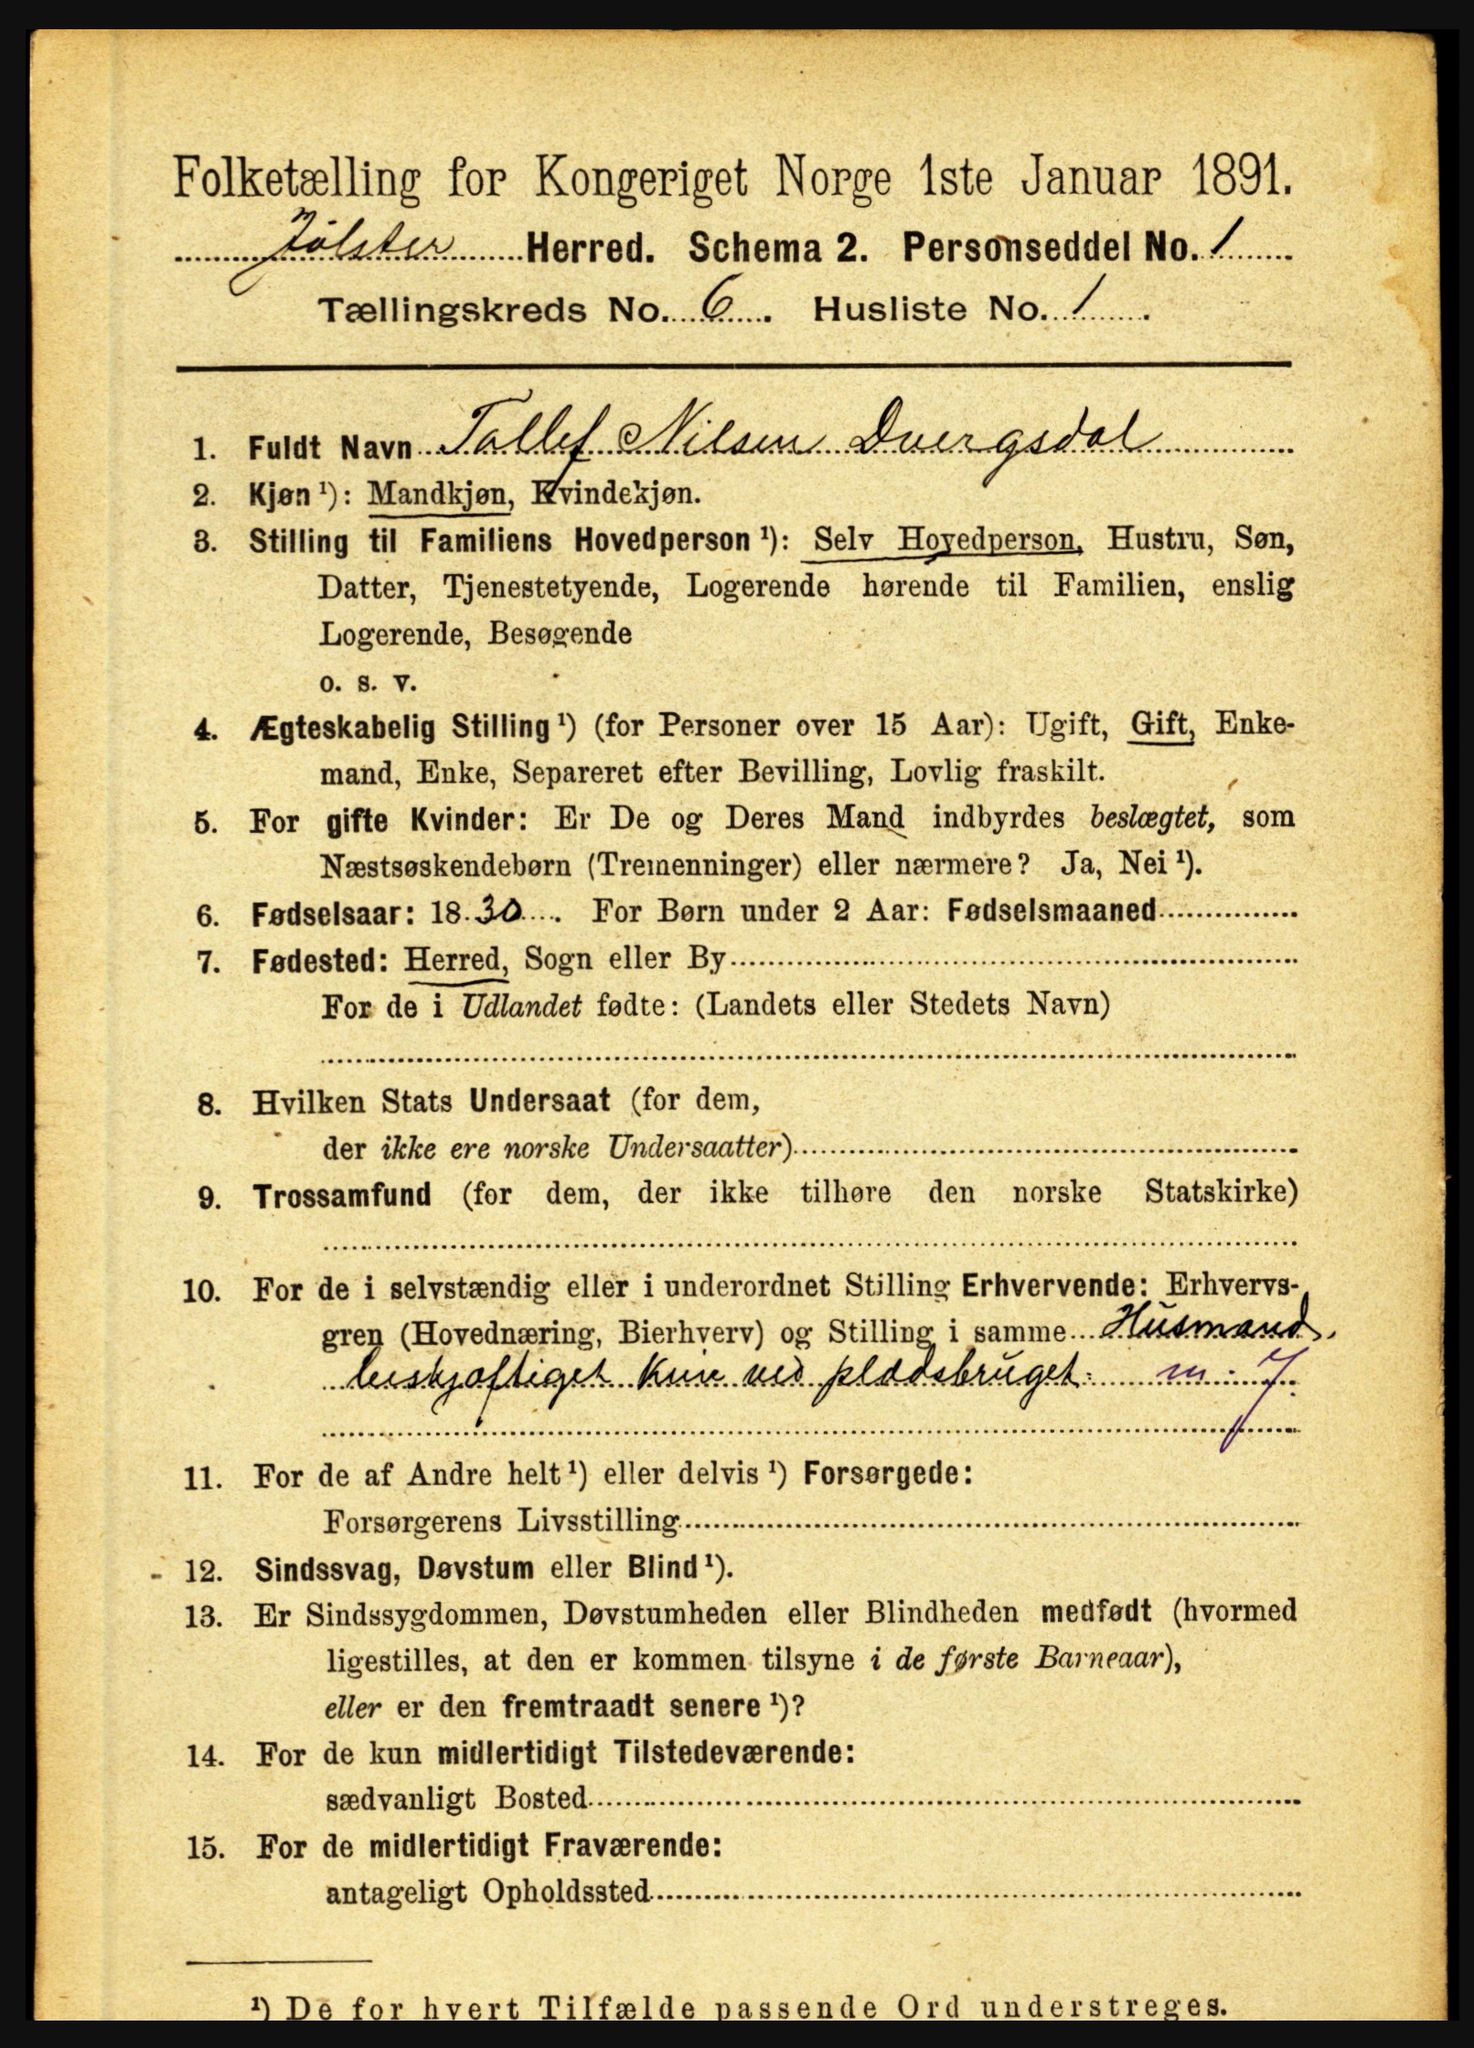 Folketælling for Kongeriget Norge 1ste Januar 1891.
Jølster Herred. Schema 2. Personseddel No. 1
Tællingskreds No. 6. Husliste No. 1.
1. Fuldt Navn Tollef Nilsen Dvergsdal
2. Kjøn ¹): Mandkjøn, Kvindekjøn.
3. Stilling til Familiens Hovedperson ¹): Selv Hovedperson, Hustru, Søn,
Datter, Tjenestetyende, Logerende hørende til Familien, enslig
Logerende, Besøgende
o. s. v.
4. Ægteskabelig Stilling ¹) (for Personer over 15 Aar): Ugift, Gift, Enke-
mand, Enke, Separeret efter Bevilling, Lovlig fraskilt.
5. For gifte Kvinder: Er De og Deres Mand indbyrdes beslægtet, som
Næstsøskendebørn (Tremenninger) eller nærmere? Ja, Nei ¹).
6. Fødselsaar: 1830. For Børn under 2 Aar: Fødselsmaaned
7. Fødested: Herred, Sogn eller By
For de i Udlandet fødte: (Landets eller Stedets Navn)
8. Hvilken Stats Undersaat (for dem,
der ikke ere norske Undersaatter)
9. Trossamfund (for dem, der ikke tilhøre den norske Statskirke)
10. For de i selvstændig eller i underordnet Stilling Erhvervende: Erhvervs-
gren (Hovednæring, Bierhverv) og Stilling i samme Husmand,
beskjæftiget kun ved pladsbruget. m. J
11. For de af Andre helt ¹) eller delvis ¹) Forsørgede:
Forsørgerens Livsstilling
12. Sindssvag, Døvstum eller Blind ¹).
13. Er Sindssygdommen, Døvstumheden eller Blindheden medfødt (hvormed
ligestilles, at den er kommen tilsyne i de første Barneaar),
eller er den fremtraadt senere ¹)?
14. For de kun midlertidigt Tilstedeværende:
sædvanligt Bosted
15. For de midlertidigt Fraværende:
antageligt Opholdssted
¹) De for hvert Tilfælde passende Ord understreges.